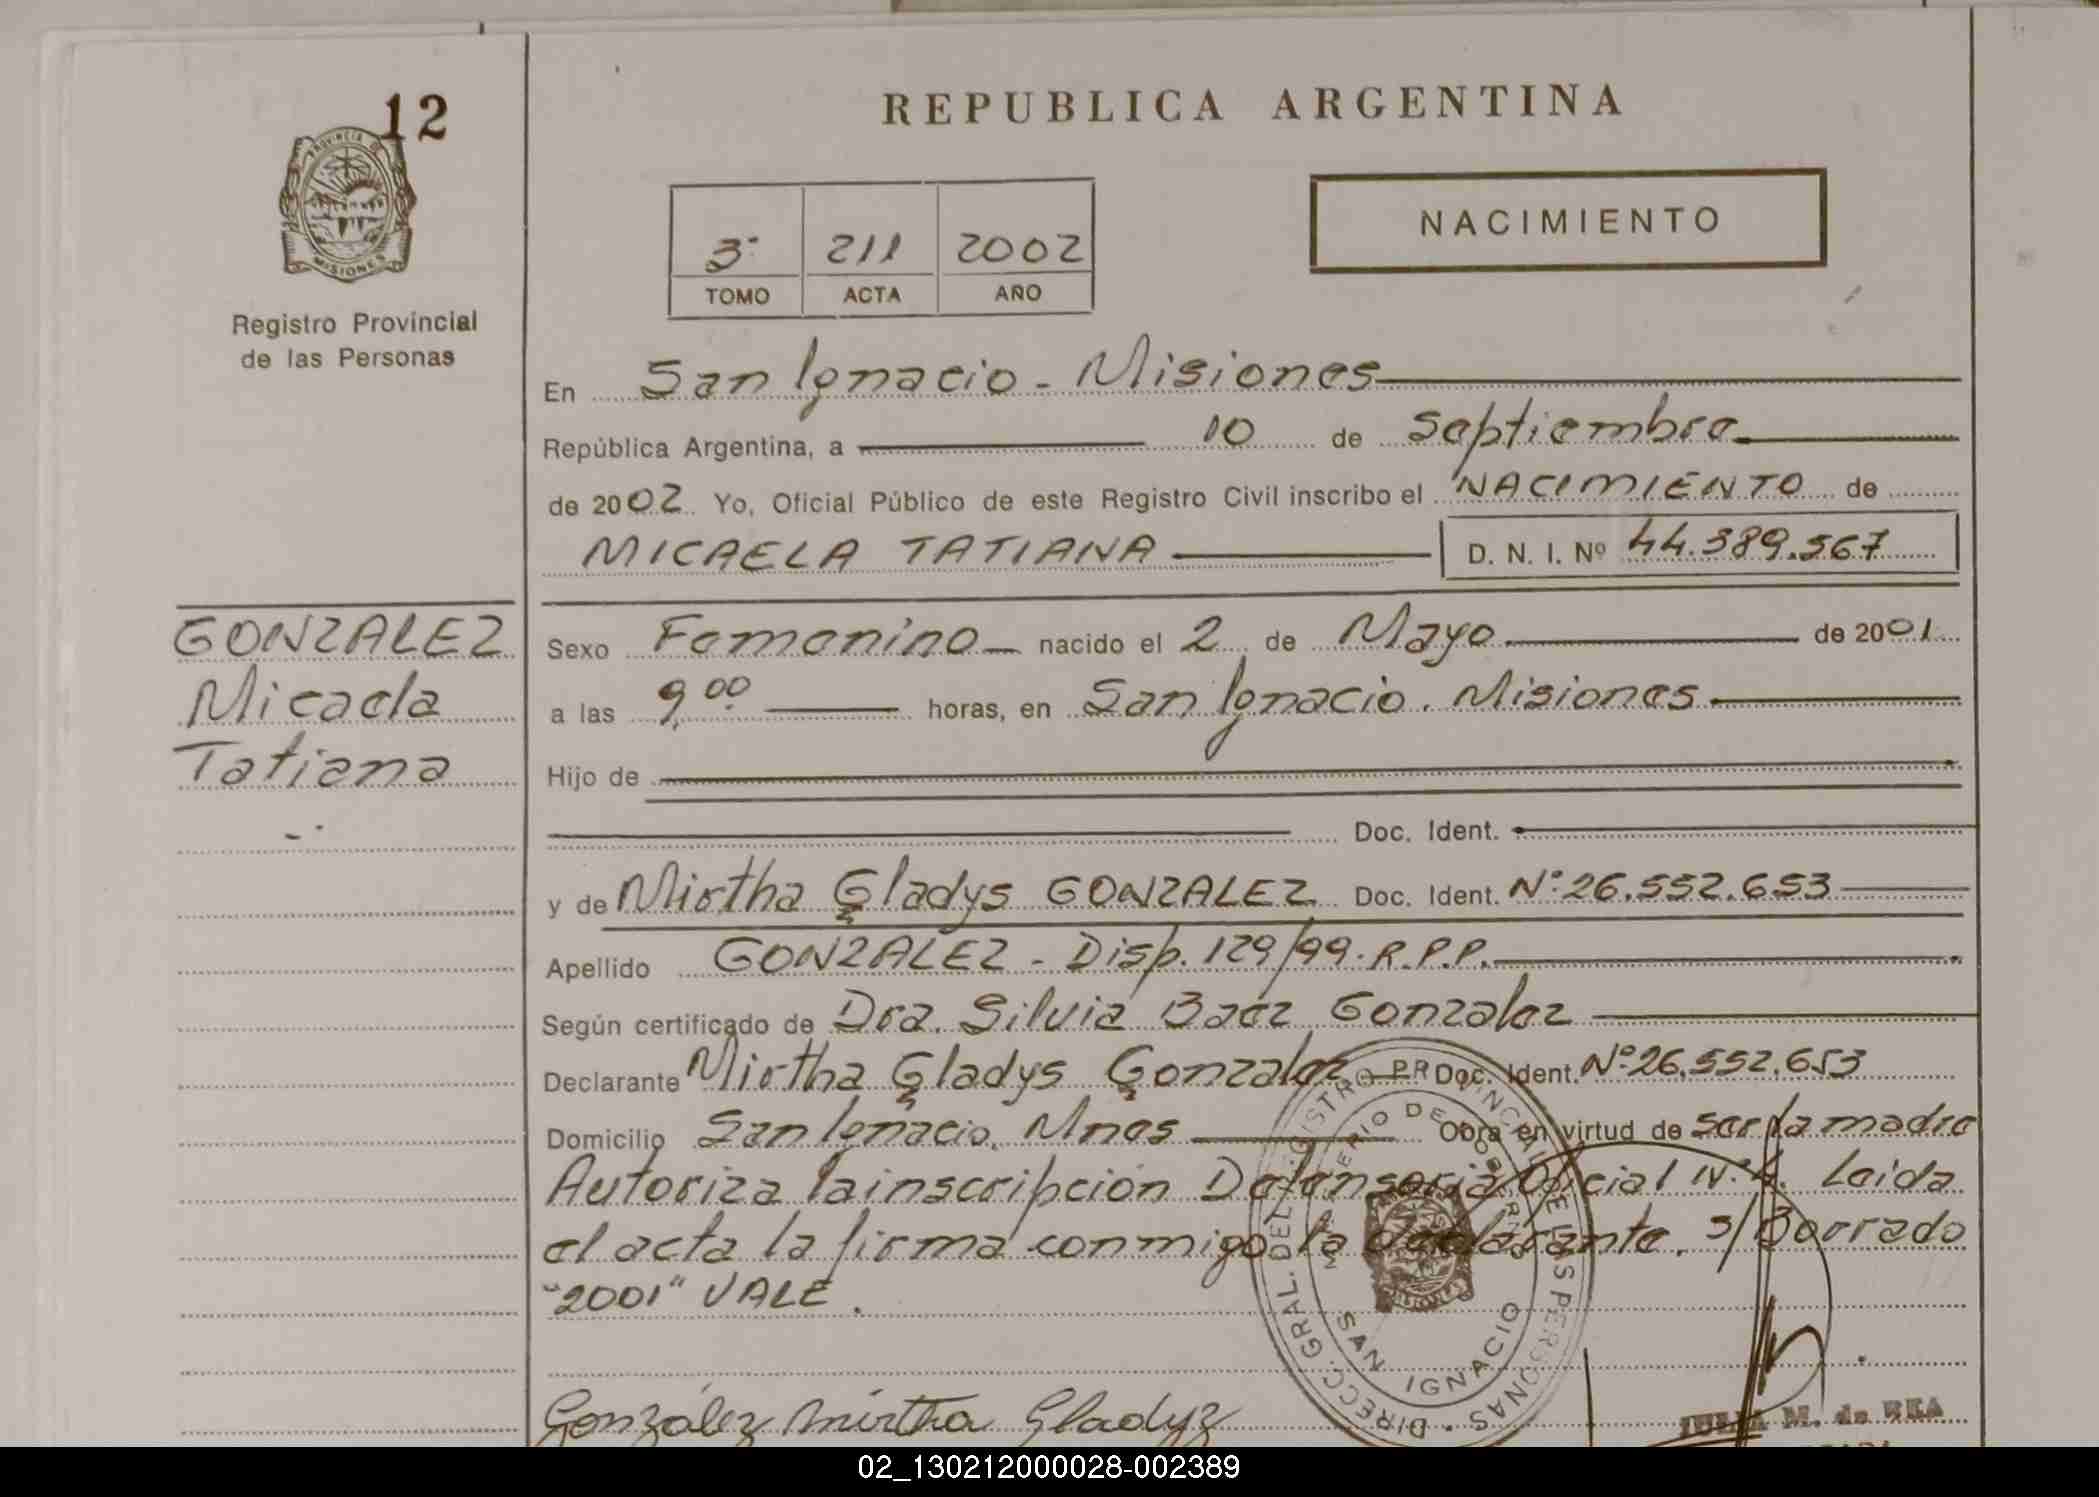 12
REPUBLICA ARGENTINA
PROVINCIA DE
MISIONES
Registro Provincial
de las Personas
NACIMIENTO
3º 211 2002
TOMO ACTA AÑO
En San Ignacio - Misiones
República Argentina, a 10 de Septiembre
de 2002 Yo, Oficial Público de este Registro Civil inscribo el NACIMIENTO de
MICAELA TATIANA D. N. I. Nº 44.389.567
GONZALEZ
Micaela
Tatiana
Sexo Femenino nacido el 2 de Mayo de 2001
a las 9,00 horas, en San Ignacio. Misiones
Hijo de
Doc. Ident.
y de Mirtha Gladys GONZALEZ Doc. Ident. Nº 26.552.653
Apellido GONZALEZ - Disp. 129/99. R.P.P.
Según certificado de Dra. Silvia Baez Gonzalez
Declarante Mirtha Gladys Gonzalez Doc. Ident. Nº 26.552.653
Domicilio San Ignacio, Mnes Obra en virtud de ser la madre
Autoriza la inscripción Defensoria Oficial Nº 4. Leida
el acta la firma conmigo la declarante. s/Borrado
"2001" VALE.
DIRECC. GRAL. DEL REGISTRO PROVINCIAL DE LAS PERSONAS
MINISTERIO DE GOBIERNO
SAN IGNACIO
González Mirtha Gladyz
JULIA M. de REA
02_130212000028-002389